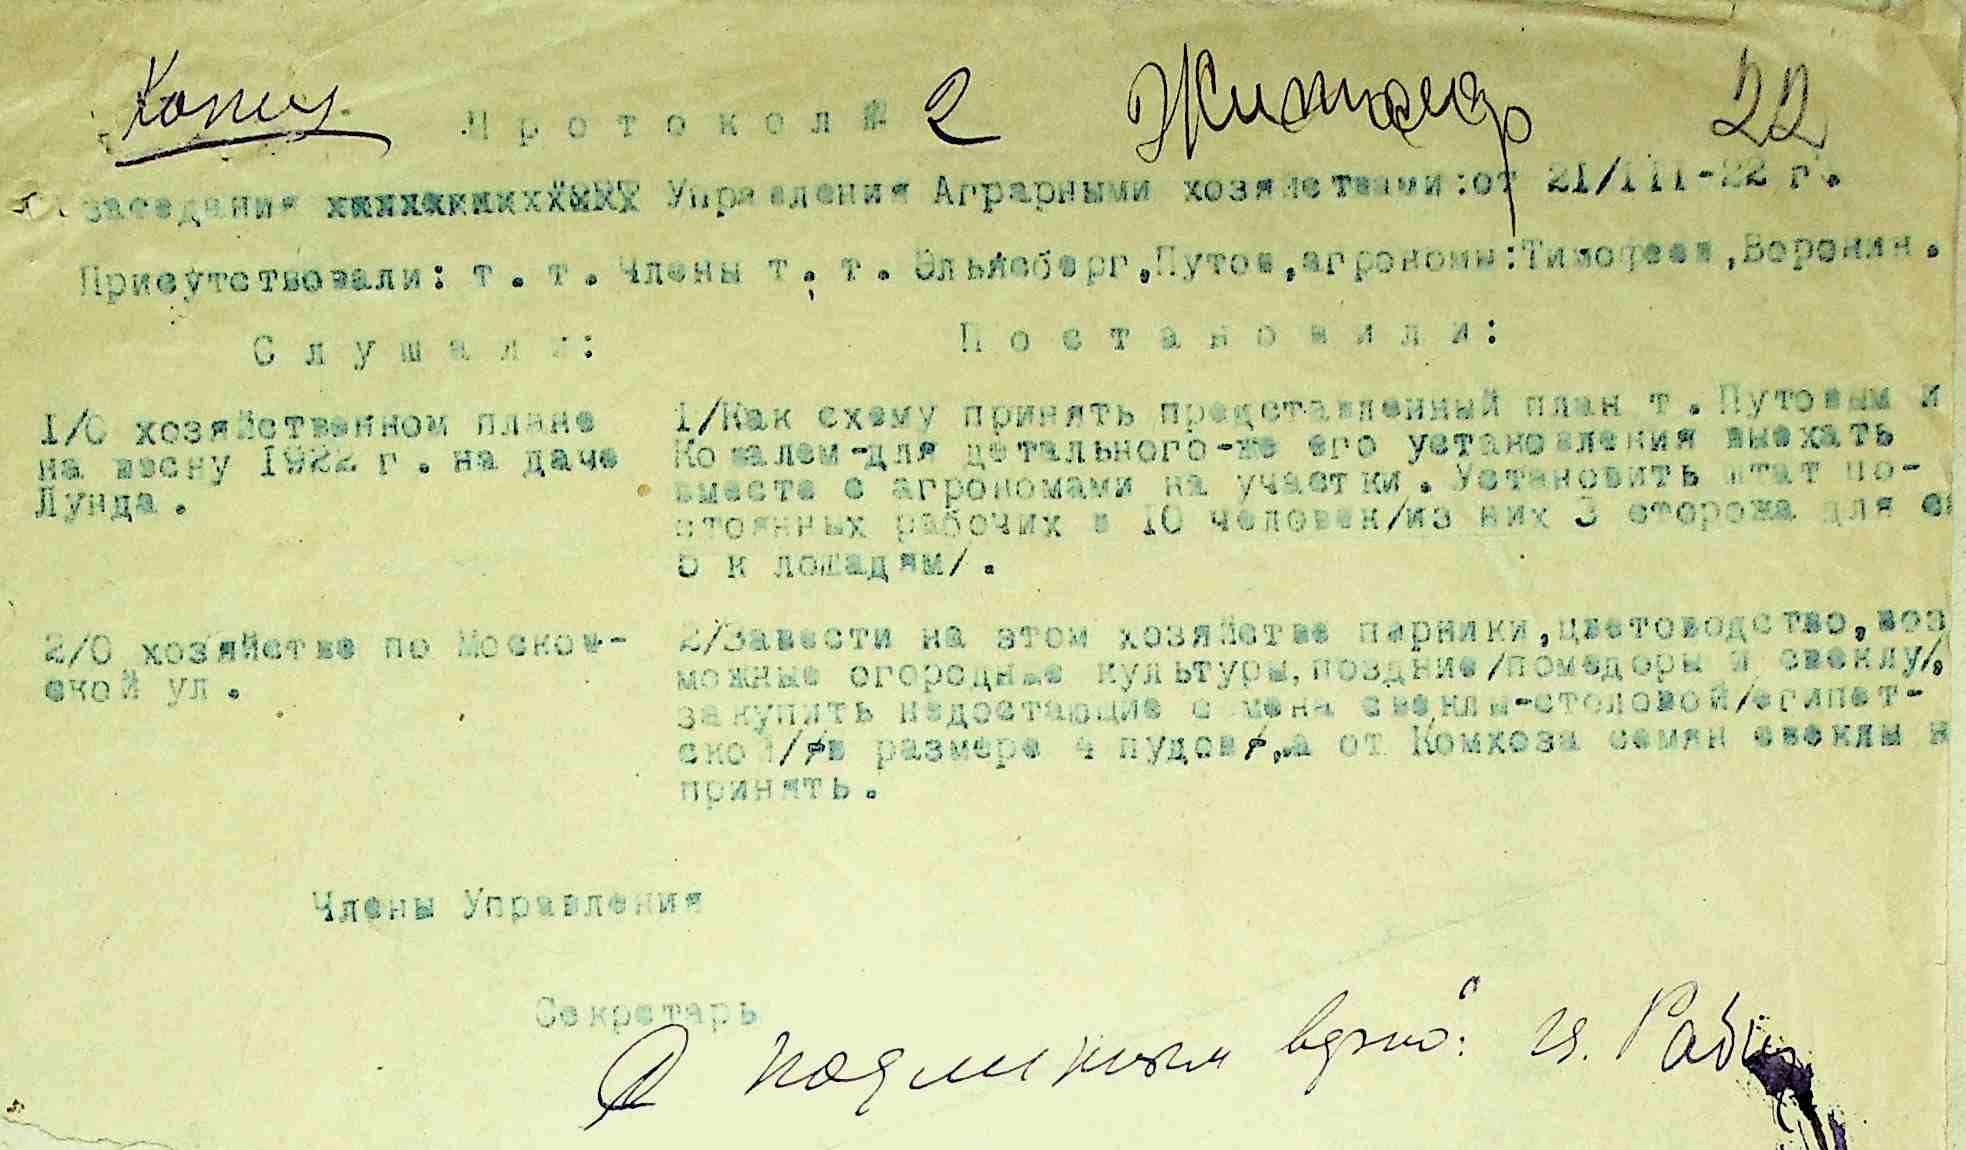 Копия
Протокол № 2
22
заседания Управления Аграрными хозяйствами:от 21/III-22 г.
Присутствовали: т.т.Члены т.т. Эльясберг,Путов,агрономы:Тимофеев,Воронин.
Слушали:
Постановили:
1/О хозяйственном плане
на весну 1922 г. на даче
Лунда.
1/Как схему принять представленный план т.Путовым и
Ковалем-для детального-же его установления выехать
вместе с агрономами на участки. Установить штат по-
стоянных рабочих в 10 человек/из них 3 сторожа для
5 к лошадям/.
2/О хозяйстве по Москов-
ской ул.
2/Завести на этом хозяйстве парники,цветоводство,воз
можные огородные культуры,поздние/помедоры и свеклу/,
закупить недостающие семена свеклы-столовой/египет-
ской/в размере 4 пудов,а от Комхоза семян свеклы н
принять.
Члены Управления
Секретарь
С подлинным верно: